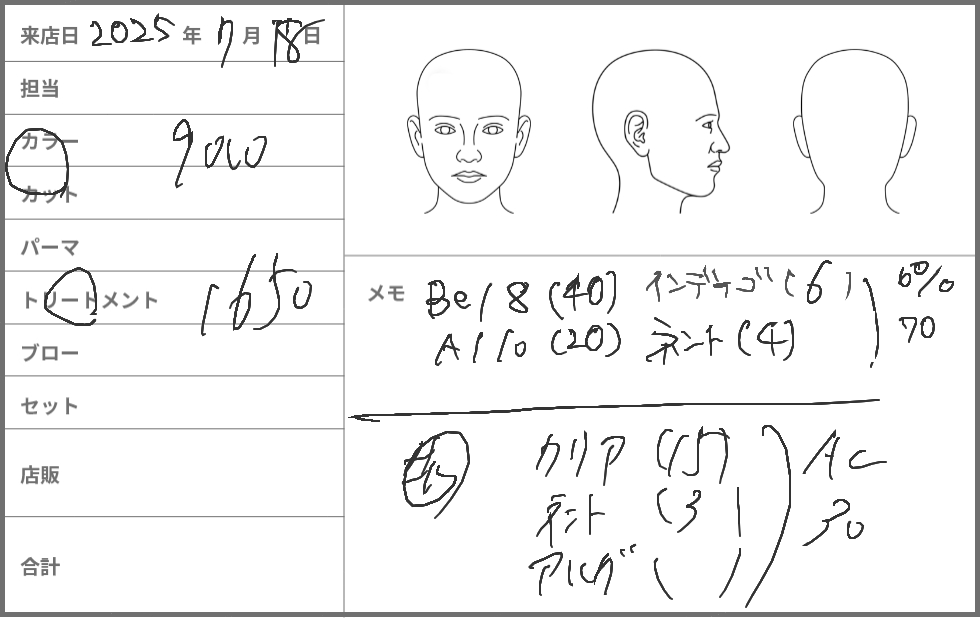 来店日 2025 年 7 月 18 日
担当
カラー 9000
カット
パーマ
トリートメント 1650
ブロー
セット
店販
合計
メモ Be/8 (40) インディゴ (6) 6%
A/10 (20) ネント (4) 70
クリア (15) Ac
ネント (3) 30
( )